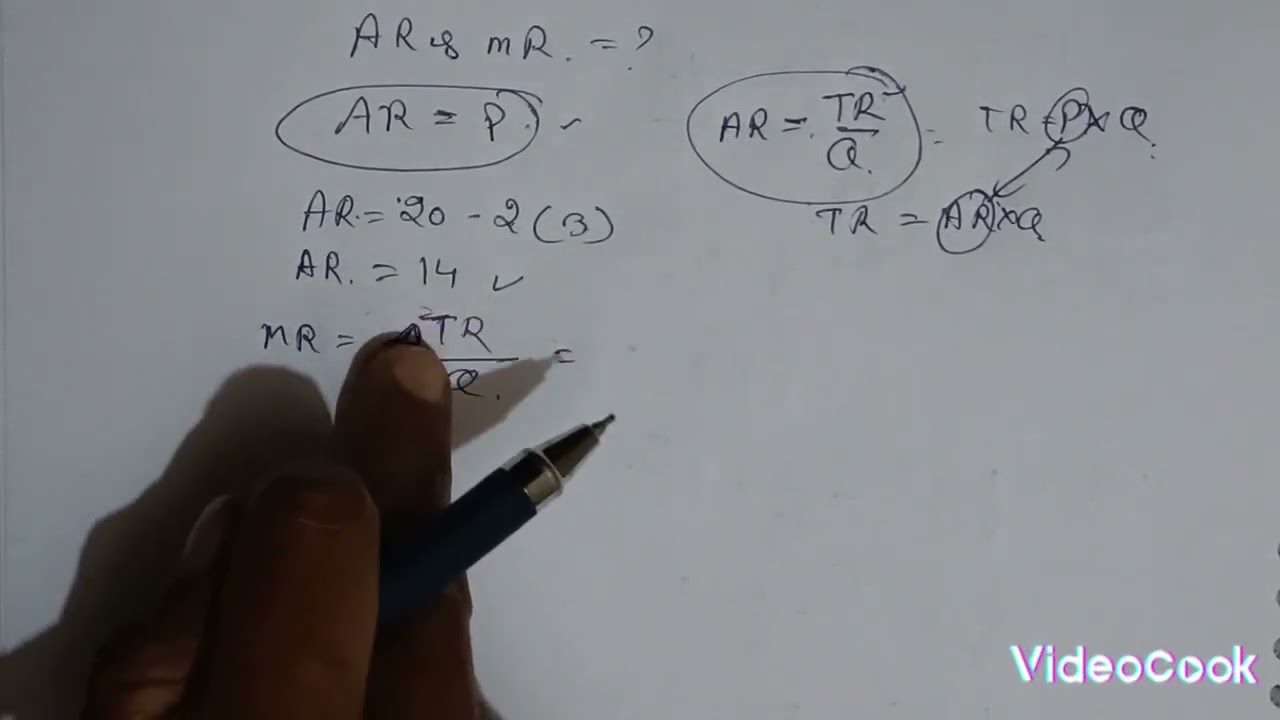 AR & MR. = ?
AR = P.
AR = 20 - 2 (3)
AR. = 14 ✓
MR = TR
Q. =
AR = TR
Q. = TR = P × Q
TR = AR × Q
VideoCook